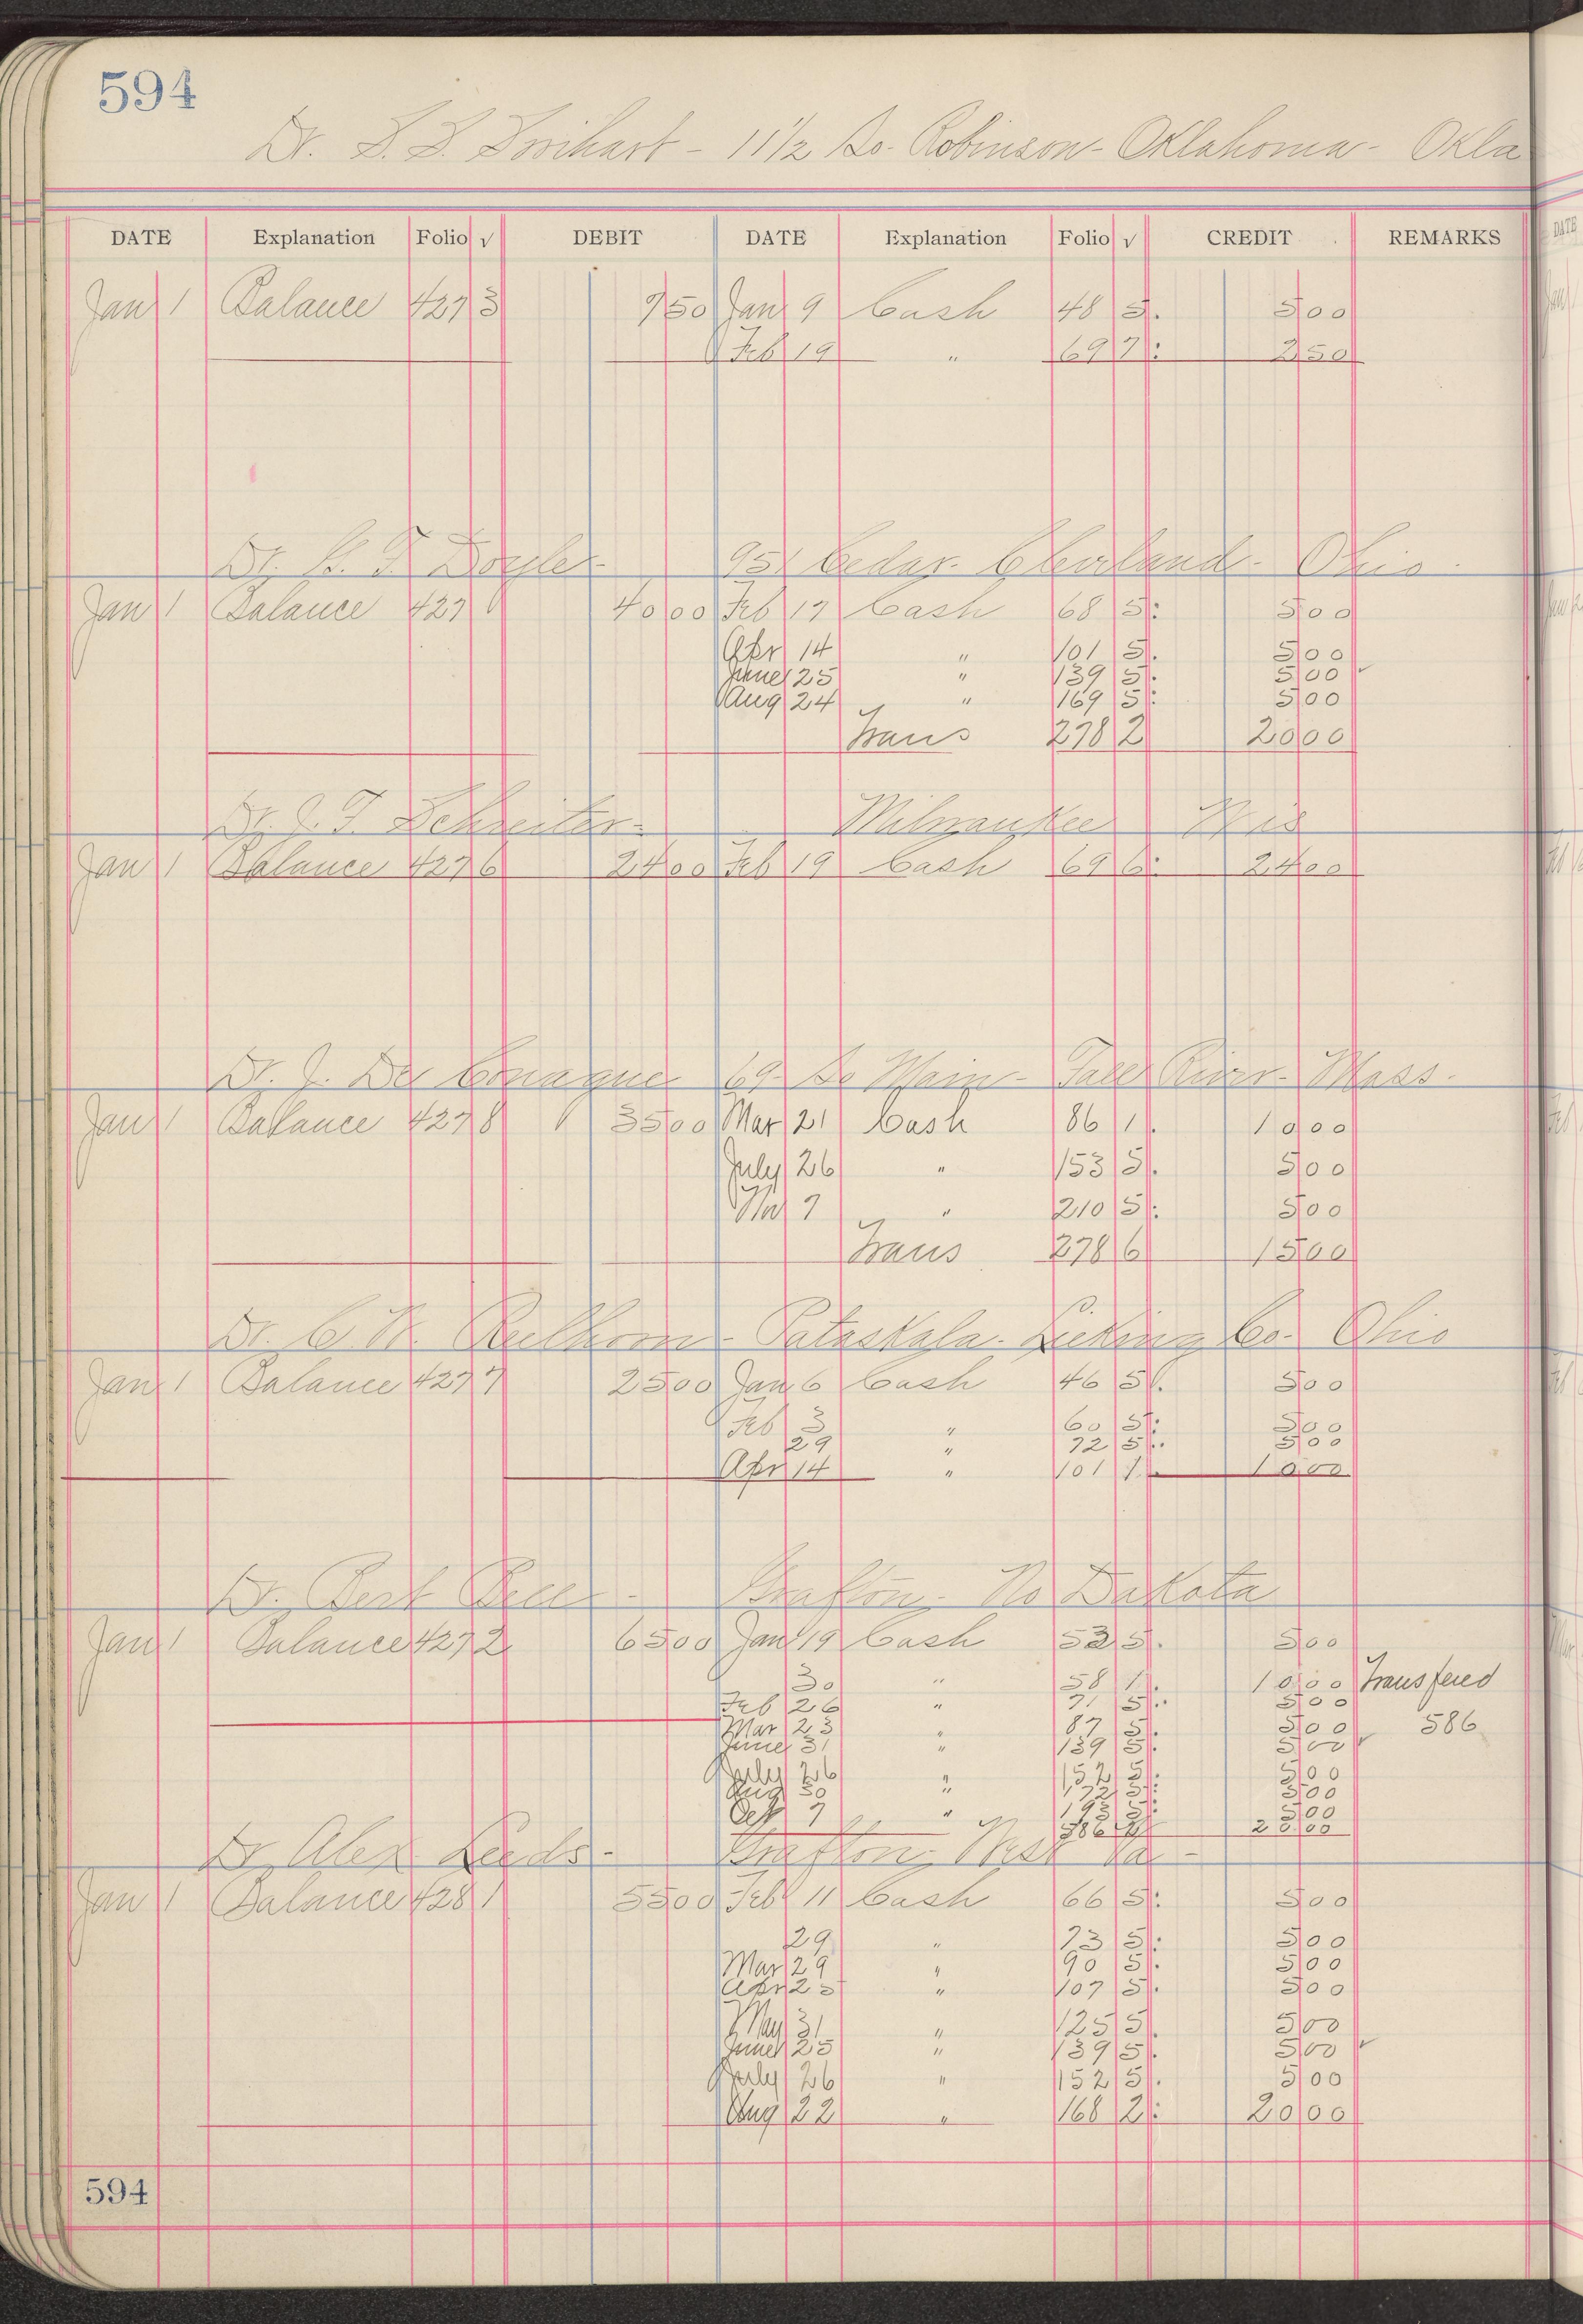 594
Dr. - 11 1/2 So. Robinson - Oklahoma - Okla
DATE Explanation Folio √ DEBIT DATE Explanation Folio √ CREDIT REMARKS
Jan 1 Balance 427 3 7 50 Jan 9 Cash 48 5. 5 00
Feb 19 " 69 7. 2 50
Dr. Doyle - 951 Cedar - Cleveland - Ohio -
Jan 1 Balance 427 40 00 Feb 17 Cash 68 5. 5 00
Apr 14 " 101 5. 5 00
June 25 " 139 5. 5 00
Aug 24 " 169 5. 5 00
Trans 278 2 20 00
Dr. J. F. Schreiter - Milwaukee Wis
Jan 1 Balance 427 6 24 00 Feb 19 Cash 69 6. 24 00
Dr. J. 69 So Main - Fall River - Mass -
Jan 1 Balance 427 8 35 00 Mar 21 Cash 86 1. 10 00
July 26 " 153 5. 5 00
7 " 210 5. 5 00
Trans 278 6 15 00
Dr. C. - Pataskala - Licking Co - Ohio
Jan 1 Balance 427 7 25 00 Jan 6 Cash 46 5. 5 00
Feb 3 " 60 5. 5 00
29 " 72 5. 5 00
Apr 14 " 101 1. 10 00
Dr. Bert Bell - Grafton - No Dakota
Jan 1 Balance 427 2 65 00 Jan 19 Cash 52 5. 5 00
30 " 58 1. 10 00 Transfered
Feb 26 " 71 5. 5 00
Mar 23 " 87 5. 5 00 586
June 31 " 139 5. 5 00
July 26 " 152 5. 5 00
Aug 30 " 172 5. 5 00
Oct 7 " 193 5. 5 00
586 25 00
Dr. Alex Leeds - Grafton, West Va -
Jan 1 Balance 428 1 55 00 Feb 11 Cash 66 5. 5 00
29 " 73 5. 5 00
Mar 29 " 90 5. 5 00
Apr 25 " 107 5. 5 00
May 31 " 125 5. 5 00
June 25 " 139 5. 5 00
July 26 " 152 5. 5 00
Aug 22 " 168 2. 20 00
594